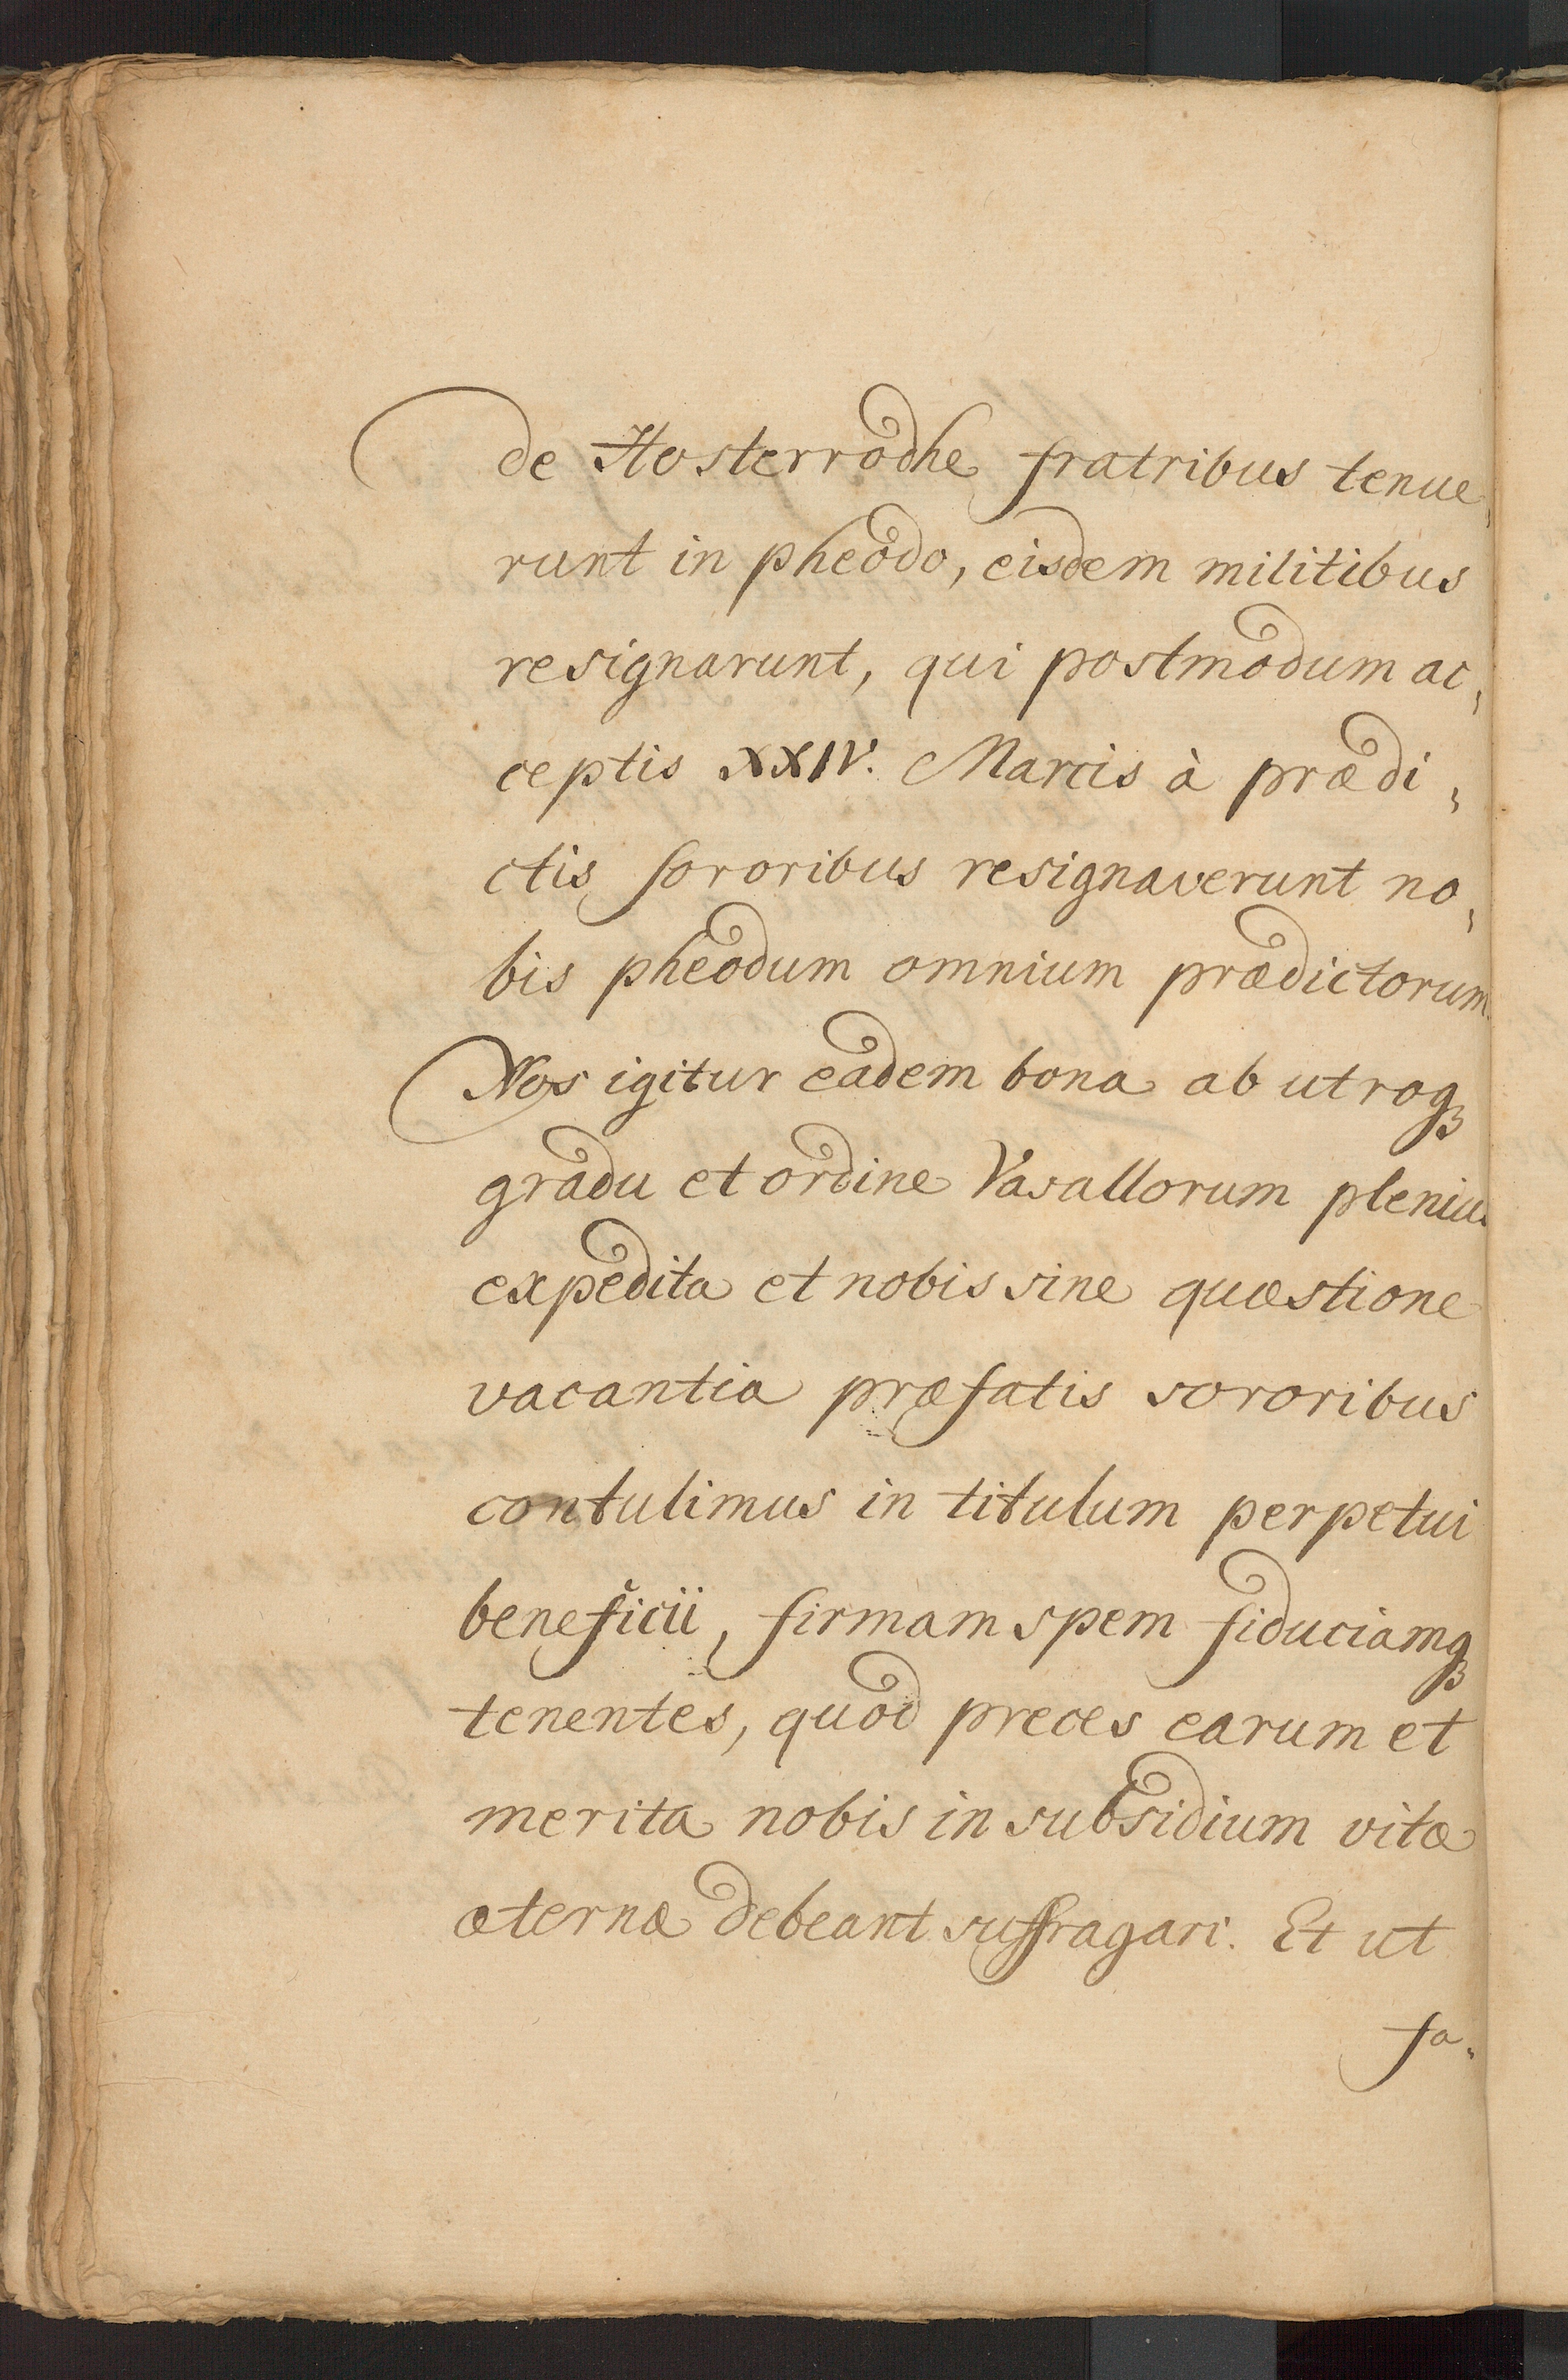 de Hosterrodhe fratribus tenue,
runt in pheodo, eisdem militibus
resignarunt, qui postmodum ac,
ceptis XXIV. Marcis à prædi,
ctis sororibus resignaverunt no,
bis pheodum omnium prædictorum.
Nos igitur eadem bona ab utroqꝫ
gradu et ordine Vasallorum plenius
expedita et nobis sine quæstione
vacantia præfatis sororibus
contulimus in titulum perpetui
beneficii, firmam spem fiduciamqꝫ
tenentes, quod preces earum et
merita nobis in subsidium vitæ
æternæ debeant suffragari. Et ut
fa,